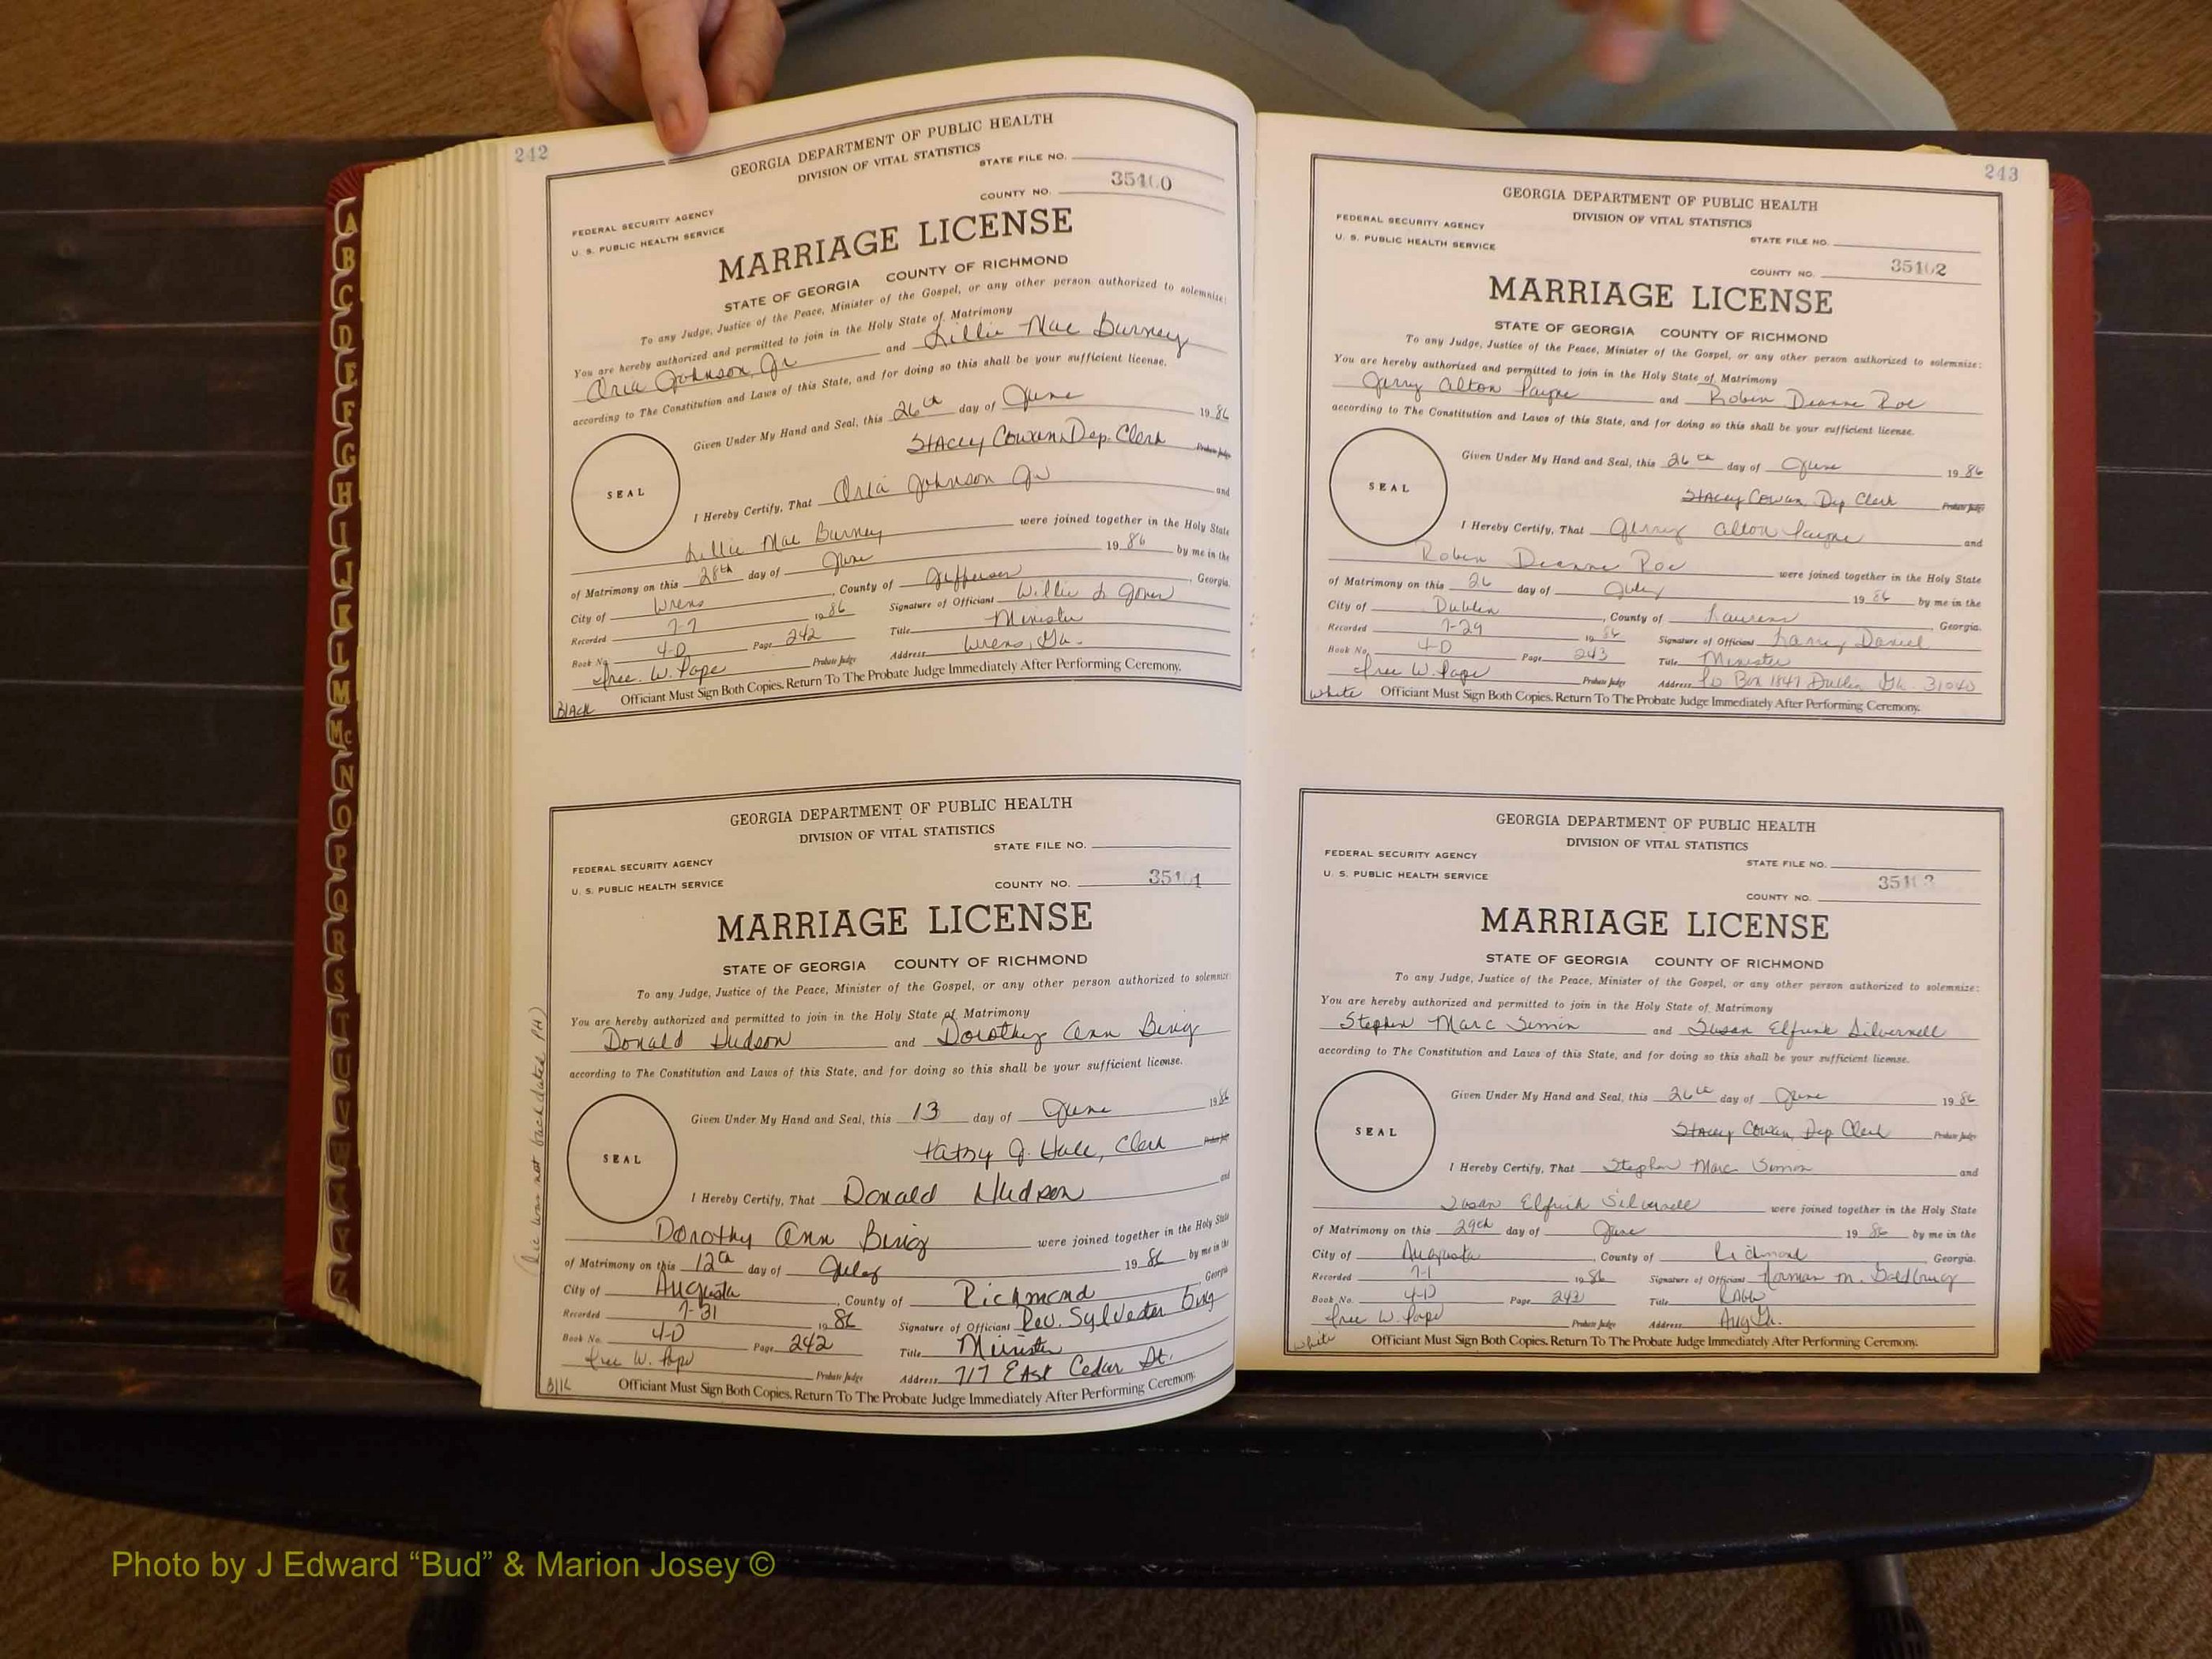 242
GEORGIA DEPARTMENT OF PUBLIC HEALTH
DIVISION OF VITAL STATISTICS
STATE FILE NO.
FEDERAL SECURITY AGENCY
COUNTY NO. 35400
U. S. PUBLIC HEALTH SERVICE
MARRIAGE LICENSE
STATE OF GEORGIA COUNTY OF RICHMOND
To any Judge, Justice of the Peace, Minister of the Gospel, or any other person authorized to solemnize:
You are hereby authorized and permitted to join in the Holy State of Matrimony
Johnson, Jr and Lillie Mae Burney
according to The Constitution and Laws of this State, and for doing so this shall be your sufficient license.
Given Under My Hand and Seal, this 26th day of June 1986
Stacey Cowan, Dep. Clerk Probate Judge
SEAL
I Hereby Certify, That Johnson Jr and
Lillie Mae Burney were joined together in the Holy State
of Matrimony on this 28th day of June 1986 by me in the
City of Wrens, County of Jefferson, Georgia.
Recorded 7-7 1986 Signature of Officiant Willie L Jones
Book No. 4-D Page 242 Title Minister
W. Pope Probate Judge Address Wrens, Ga.
Officiant Must Sign Both Copies. Return To The Probate Judge Immediately After Performing Ceremony.
BLACK
GEORGIA DEPARTMENT OF PUBLIC HEALTH
DIVISION OF VITAL STATISTICS
STATE FILE NO.
FEDERAL SECURITY AGENCY
U. S. PUBLIC HEALTH SERVICE
COUNTY NO.
MARRIAGE LICENSE
STATE OF GEORGIA COUNTY OF RICHMOND
To any Judge, Justice of the Peace, Minister of the Gospel, or any other person authorized to solemnize:
You are hereby authorized and permitted to join in the Holy State of Matrimony
Donald Hudson and Dorothy Ann Bing
according to The Constitution and Laws of this State, and for doing so this shall be your sufficient license.
Given Under My Hand and Seal, this 13 day of June 1986
Patsy J. Hall, Clerk Probate Judge
SEAL
I Hereby Certify, That Donald Hudson and
Dorothy Ann Bing were joined together in the Holy State
of Matrimony on this 12th day of July 1986 by me in the
City of Augusta, County of Richmond, Georgia
Recorded 7-31 1986 Signature of Officiant Rev. Sylvester Bing
Book No. 4-D Page 242 Title Minister
W. Pope Probate Judge Address 717 East Cedar St.
Officiant Must Sign Both Copies. Return To The Probate Judge Immediately After Performing Ceremony.
Blk
was not backdated PH)
243
GEORGIA DEPARTMENT OF PUBLIC HEALTH
DIVISION OF VITAL STATISTICS
FEDERAL SECURITY AGENCY
U. S. PUBLIC HEALTH SERVICE
STATE FILE NO.
COUNTY NO. 35402
MARRIAGE LICENSE
STATE OF GEORGIA COUNTY OF RICHMOND
To any Judge, Justice of the Peace, Minister of the Gospel, or any other person authorized to solemnize:
You are hereby authorized and permitted to join in the Holy State of Matrimony
Gerry Alton Payne and Robin Deanne Roe
according to The Constitution and Laws of this State, and for doing so this shall be your sufficient license.
Given Under My Hand and Seal, this 26th day of June 1986
Stacey Cowan, Dep Clerk Probate Judge
SEAL
I Hereby Certify, That Gerry Alton Payne and
Robin Deanne Roe were joined together in the Holy State
of Matrimony on this 26 day of July 1986 by me in the
City of Dublin, County of Laurens Georgia.
Recorded 7-29 1986 Signature of Officiant Larry Daniel
Book No. 4-D Page 243 Title Minister
W. Pope Probate Judge Address Po Box 1847 Dublin, Ga. 31040
Officiant Must Sign Both Copies. Return To The Probate Judge Immediately After Performing Ceremony.
White
GEORGIA DEPARTMENT OF PUBLIC HEALTH
DIVISION OF VITAL STATISTICS
FEDERAL SECURITY AGENCY
U. S. PUBLIC HEALTH SERVICE
STATE FILE NO.
COUNTY NO. 35403
MARRIAGE LICENSE
STATE OF GEORGIA COUNTY OF RICHMOND
To any Judge, Justice of the Peace, Minister of the Gospel, or any other person authorized to solemnize:
You are hereby authorized and permitted to join in the Holy State of Matrimony
Stephen Marc Simon and Susan Silvernell
according to The Constitution and Laws of this State, and for doing so this shall be your sufficient license.
Given Under My Hand and Seal, this 26th day of June 1986
Stacey Cowan, Dep Clerk Probate Judge
SEAL
I Hereby Certify, That Stephen Marc Simon and
Susan Silvernell were joined together in the Holy State
of Matrimony on this 29th day of June 1986 by me in the
City of Augusta, County of Richmond Georgia.
Recorded 7-1 1986 Signature of Officiant Norman M. Goldburg
Book No. 4-D Page 243 Title Rabbi
W. Pope Probate Judge Address Aug Ga.
Officiant Must Sign Both Copies. Return To The Probate Judge Immediately After Performing Ceremony.
White
A
B
C
D
E
F
G
H
I
J
K
L
M
Mc
N
O
P
Q
R
S
T
U
V
W
X
Y
Z
Photo by J Edward “Bud” & Marion Josey ©